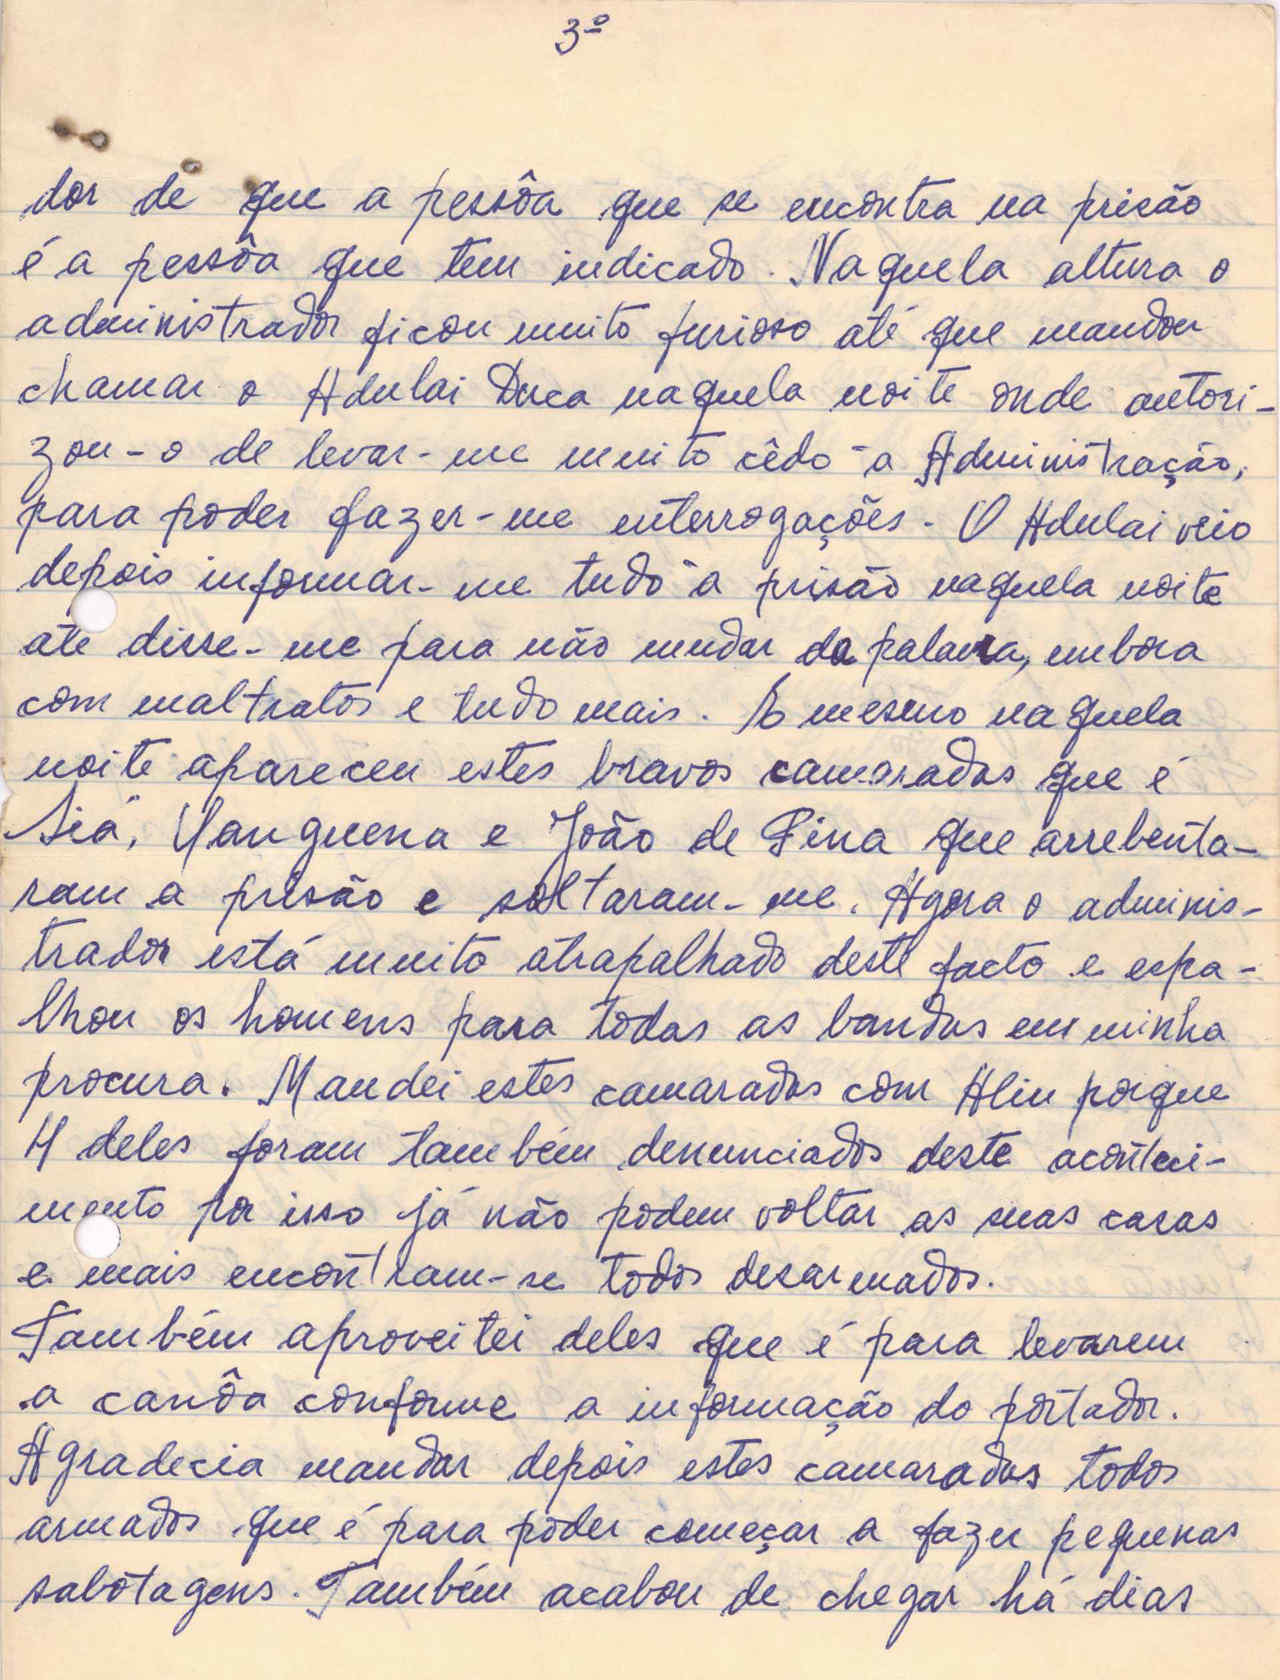 3º
dor de que a pessôa que se encontra na prisão
é a pessôa que tem indicado. Naquela altura o
administrador ficou muito furioso até que mandou
chamar o Adulai Duca naquela noite onde autori-
zou-o de levar-me muito cêdo à Administração,
para poder fazer-me enterrogações. O Adulai veio
depois informar-me tudo à prisão naquela noite
até disse-me para não mudar da palavra, embora
com maltratos e tudo mais. E mesmo naquela
noite apareceu estes bravos camaradas que é
Siá, Yanguena e João de Pina que arrebenta-
ram a prisão e soltaram-me. Agora o adminis-
trador está muito atrapalhado deste facto e espa-
lhou os homens para todas as bandas em minha
procura. Mandei estes camaradas com Aliu porque
4 deles foram também denunciados deste aconteci-
mento por isso já não podem voltar as suas casas
e mais encontram-se todos desarmados.
Também aproveitei deles que é para levarem
a canôa conforme a informação do portador.
Agradecia mandar depois estes camaradas todos
armados que é para poder começar a fazer pequenas
sabotagens. Também acabou de chegar há dias